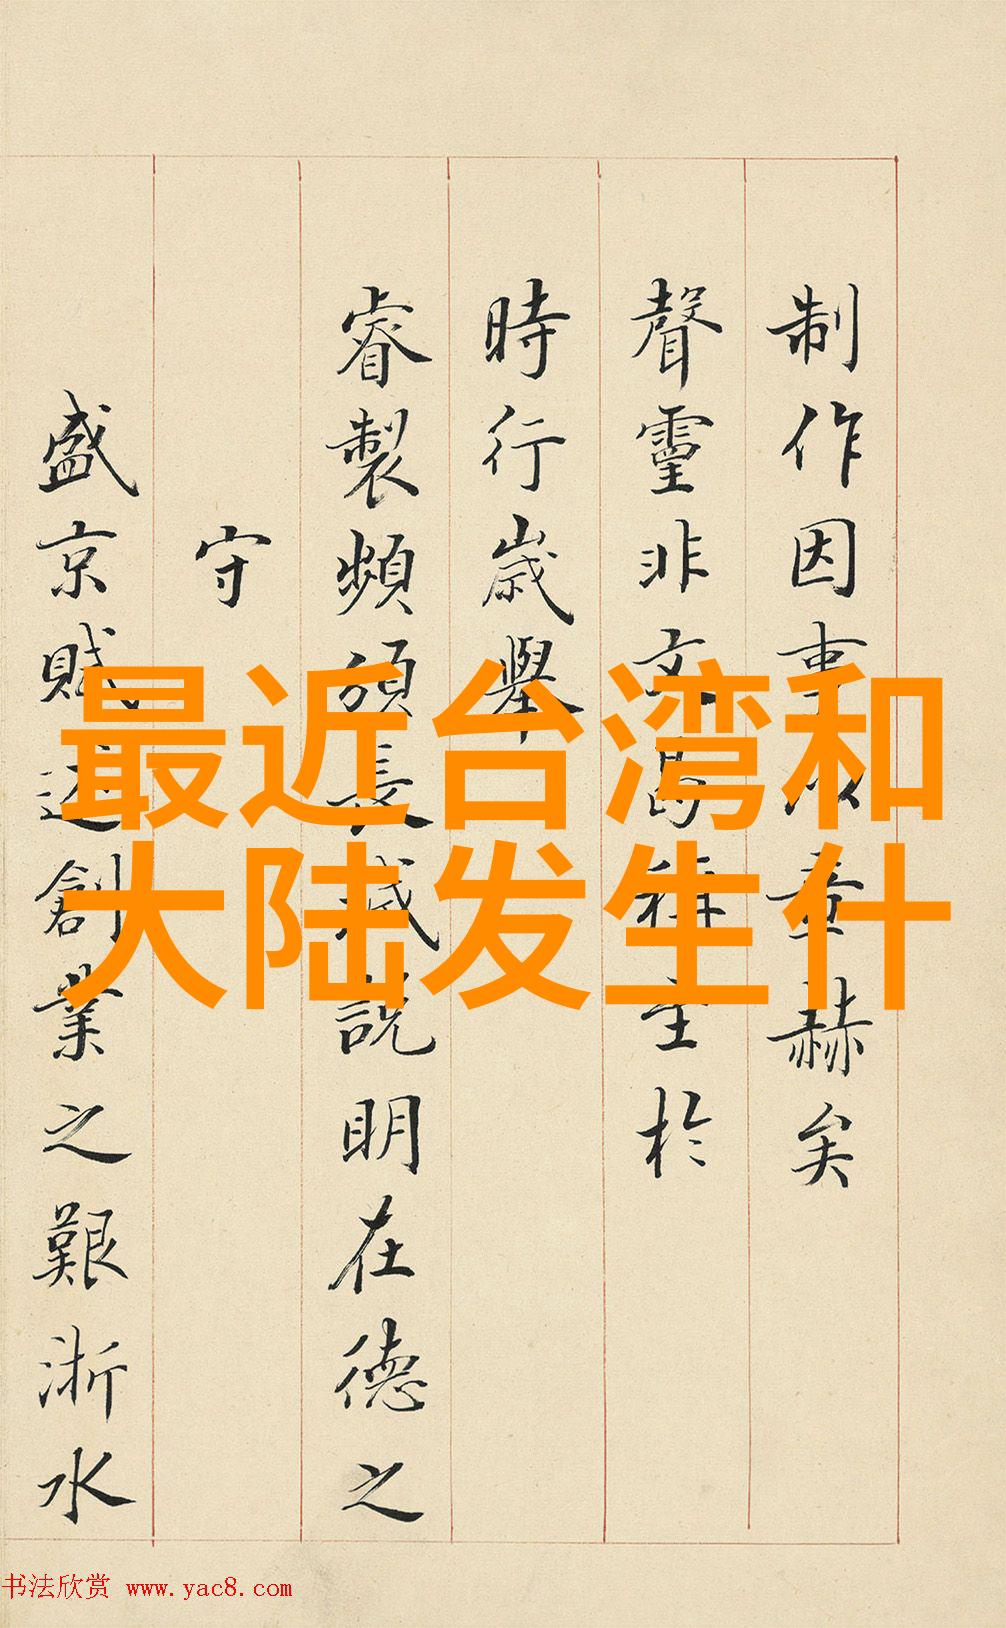 制作因事成章赫矣
聲靈非文曷稱至於
時行歲舉
睿製頻頒長緘說明在德之
守
盛京賦述創業之艱浙水
最近台湾和
大陆发生什
书法欣赏 www.yac8.com